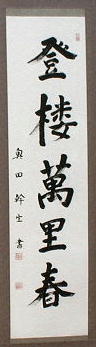 登楼萬里春
奥田幹生書